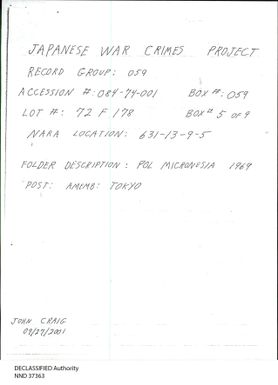 JAPANESE WAR CRIMES PROJECT
RECORD GROUP: 059
ACCESSION #: 084-74-001 BOX #: 059
LOT #: 72 F 178 BOX # 5 of 9
NARA LOCATION: 631-13-9-5
FOLDER DESCRIPTION: POL MICRONESIA 1969
POST: AMEMB: TOKYO
JOHN CRAIG
09/27/2001
DECLASSIFIED Authority
NND 37363